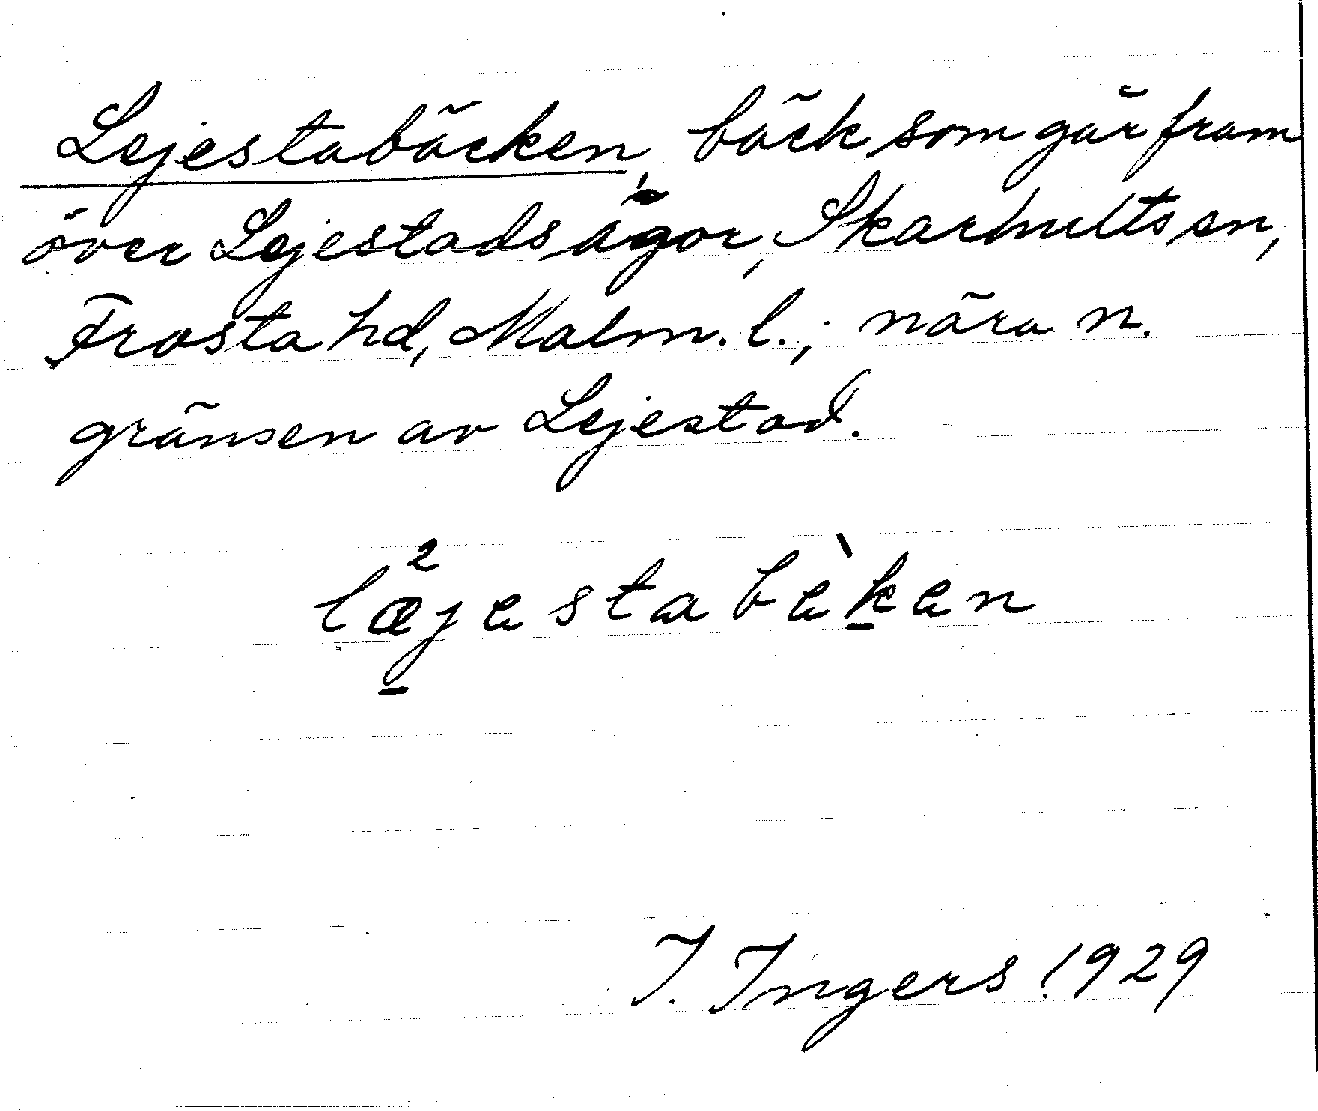 Lejestabäcken, bäck som går fram
över Lejestads ägor, Skarhults sn,
Frosta hd, Malm. l.; nära n.
gränsen av Lejestad.
lǽ²jestabèken
I. Ingers 1929